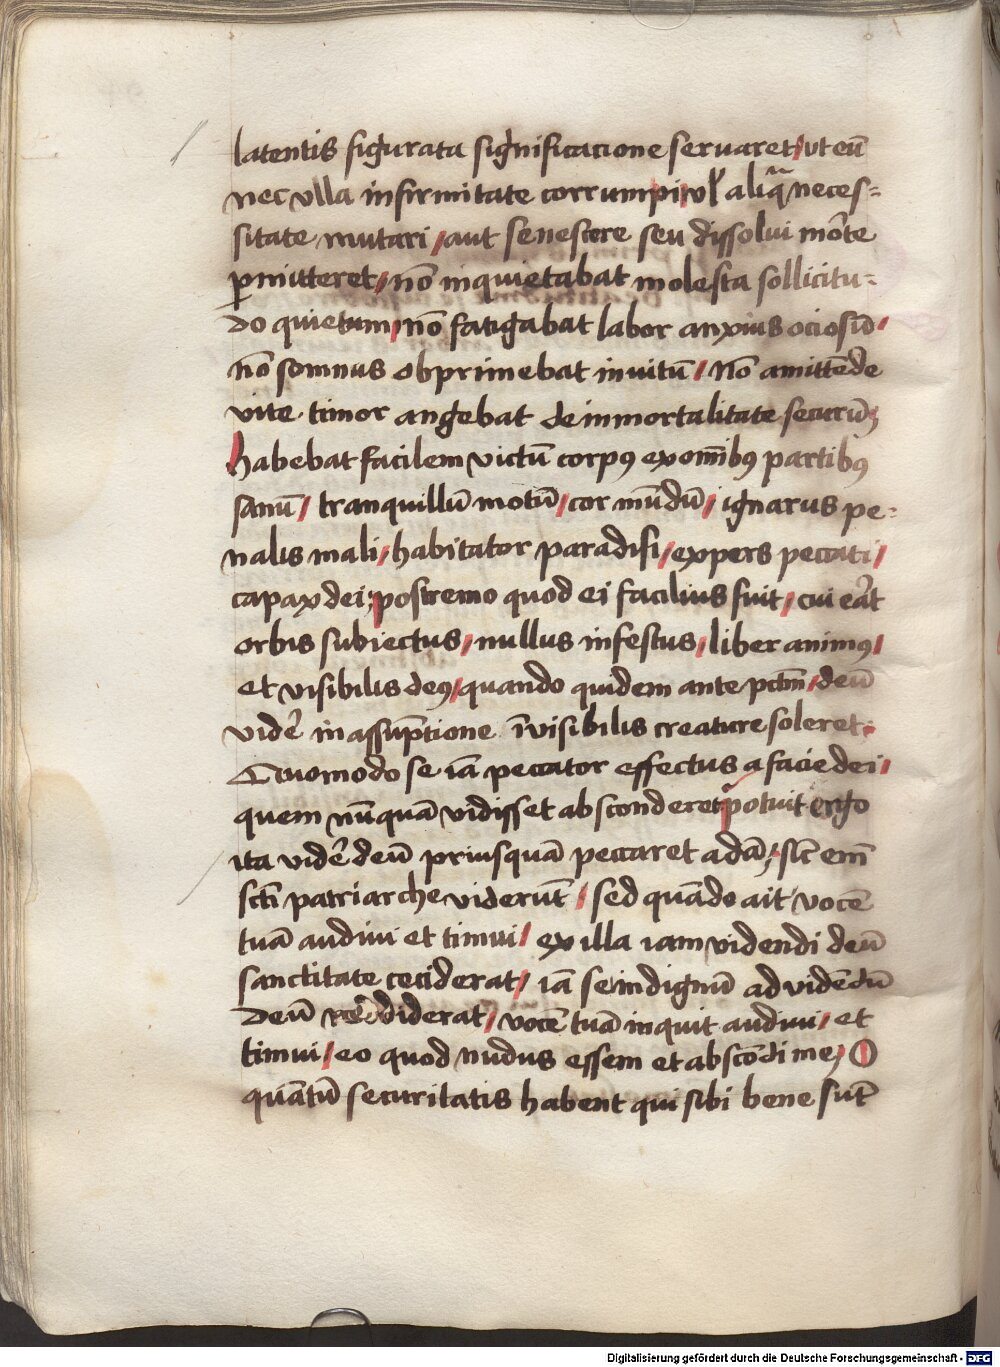 latentis figurata significacione seruaret / vt eū
nec vlla infirmitate corrumpi / vl̓ aliq̄ neces=
sitate mutari / aut senescere seu dissolui mōte
ꝑmitteret / nō inquietabat molesta sollicitu=
do quietum / nō fatigabat labor anxius ociosū /
nō somnus obprimebat inuitū / Nō amittēde
vite timor angebat de inmortalitate securū;
habebat facilem victū corpꝰ ex om̄ibꝰ partibꝰ
sanū / tranquillū motū / cor mūdū / ignarus pe=
nalis mali / habitator paradisi / expers peccati /
capax dei; postremo quod ei facilius fuit / cui eāt
orbis subiectus / nullus infestus / liber animꝰ /
et visibilis deꝰ / quando quidem ante pctm̄ / deū
vidē in assūptione īvisibilis creature soleret.
Quomodo se iā peccator effectus a facie dei /
quem nūquā vidisset absconderet / potuit ergo
ita vidē deū priusquā peccaret adā; sic̄ em̄
scti patriarche viderūt / sed quādo ait vocē
tuā audiui et timui / ex illa iam videndi deū
sanctitate ceciderat / iā se indignū ad vidēdū
deū reddiderat / vocē tuā inquit audiui / et
timui / eo quod nudus essem et abscōdi me; O
quātū securitatis habent qui sibi bene sūt
Digitalisierung gefördert durch die Deutsche Forschungsgemeinschaft - DFG